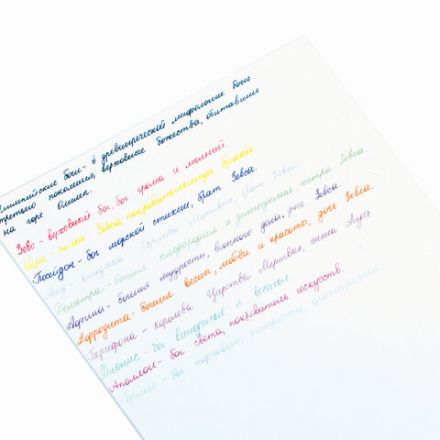 Олимпийские боги - в древнегреческой мифологии боги
третьего поколения, верховные божества, обитавшие
на горе Олимп.
Зевс - верховный бог, бог грома и молний.
Гера - жена Зевса, покровительница брака.
Посейдон - бог морской стихии, брат Зевса.
Царства Мертвых, брат Зевса.
Деметра - богиня плодородия и земледелия, сестра Зевса
Афина - богиня мудрости, военного дела, дочь Зевса
Афродита - богиня весны, любви и красоты, дочь Зевса.
Персефона - королева Царства Мертвых, жена Аида
Дионис - бог виноделия и веселья
Аполлон - бог света, покровитель искусств
Гермес - бог торговли,